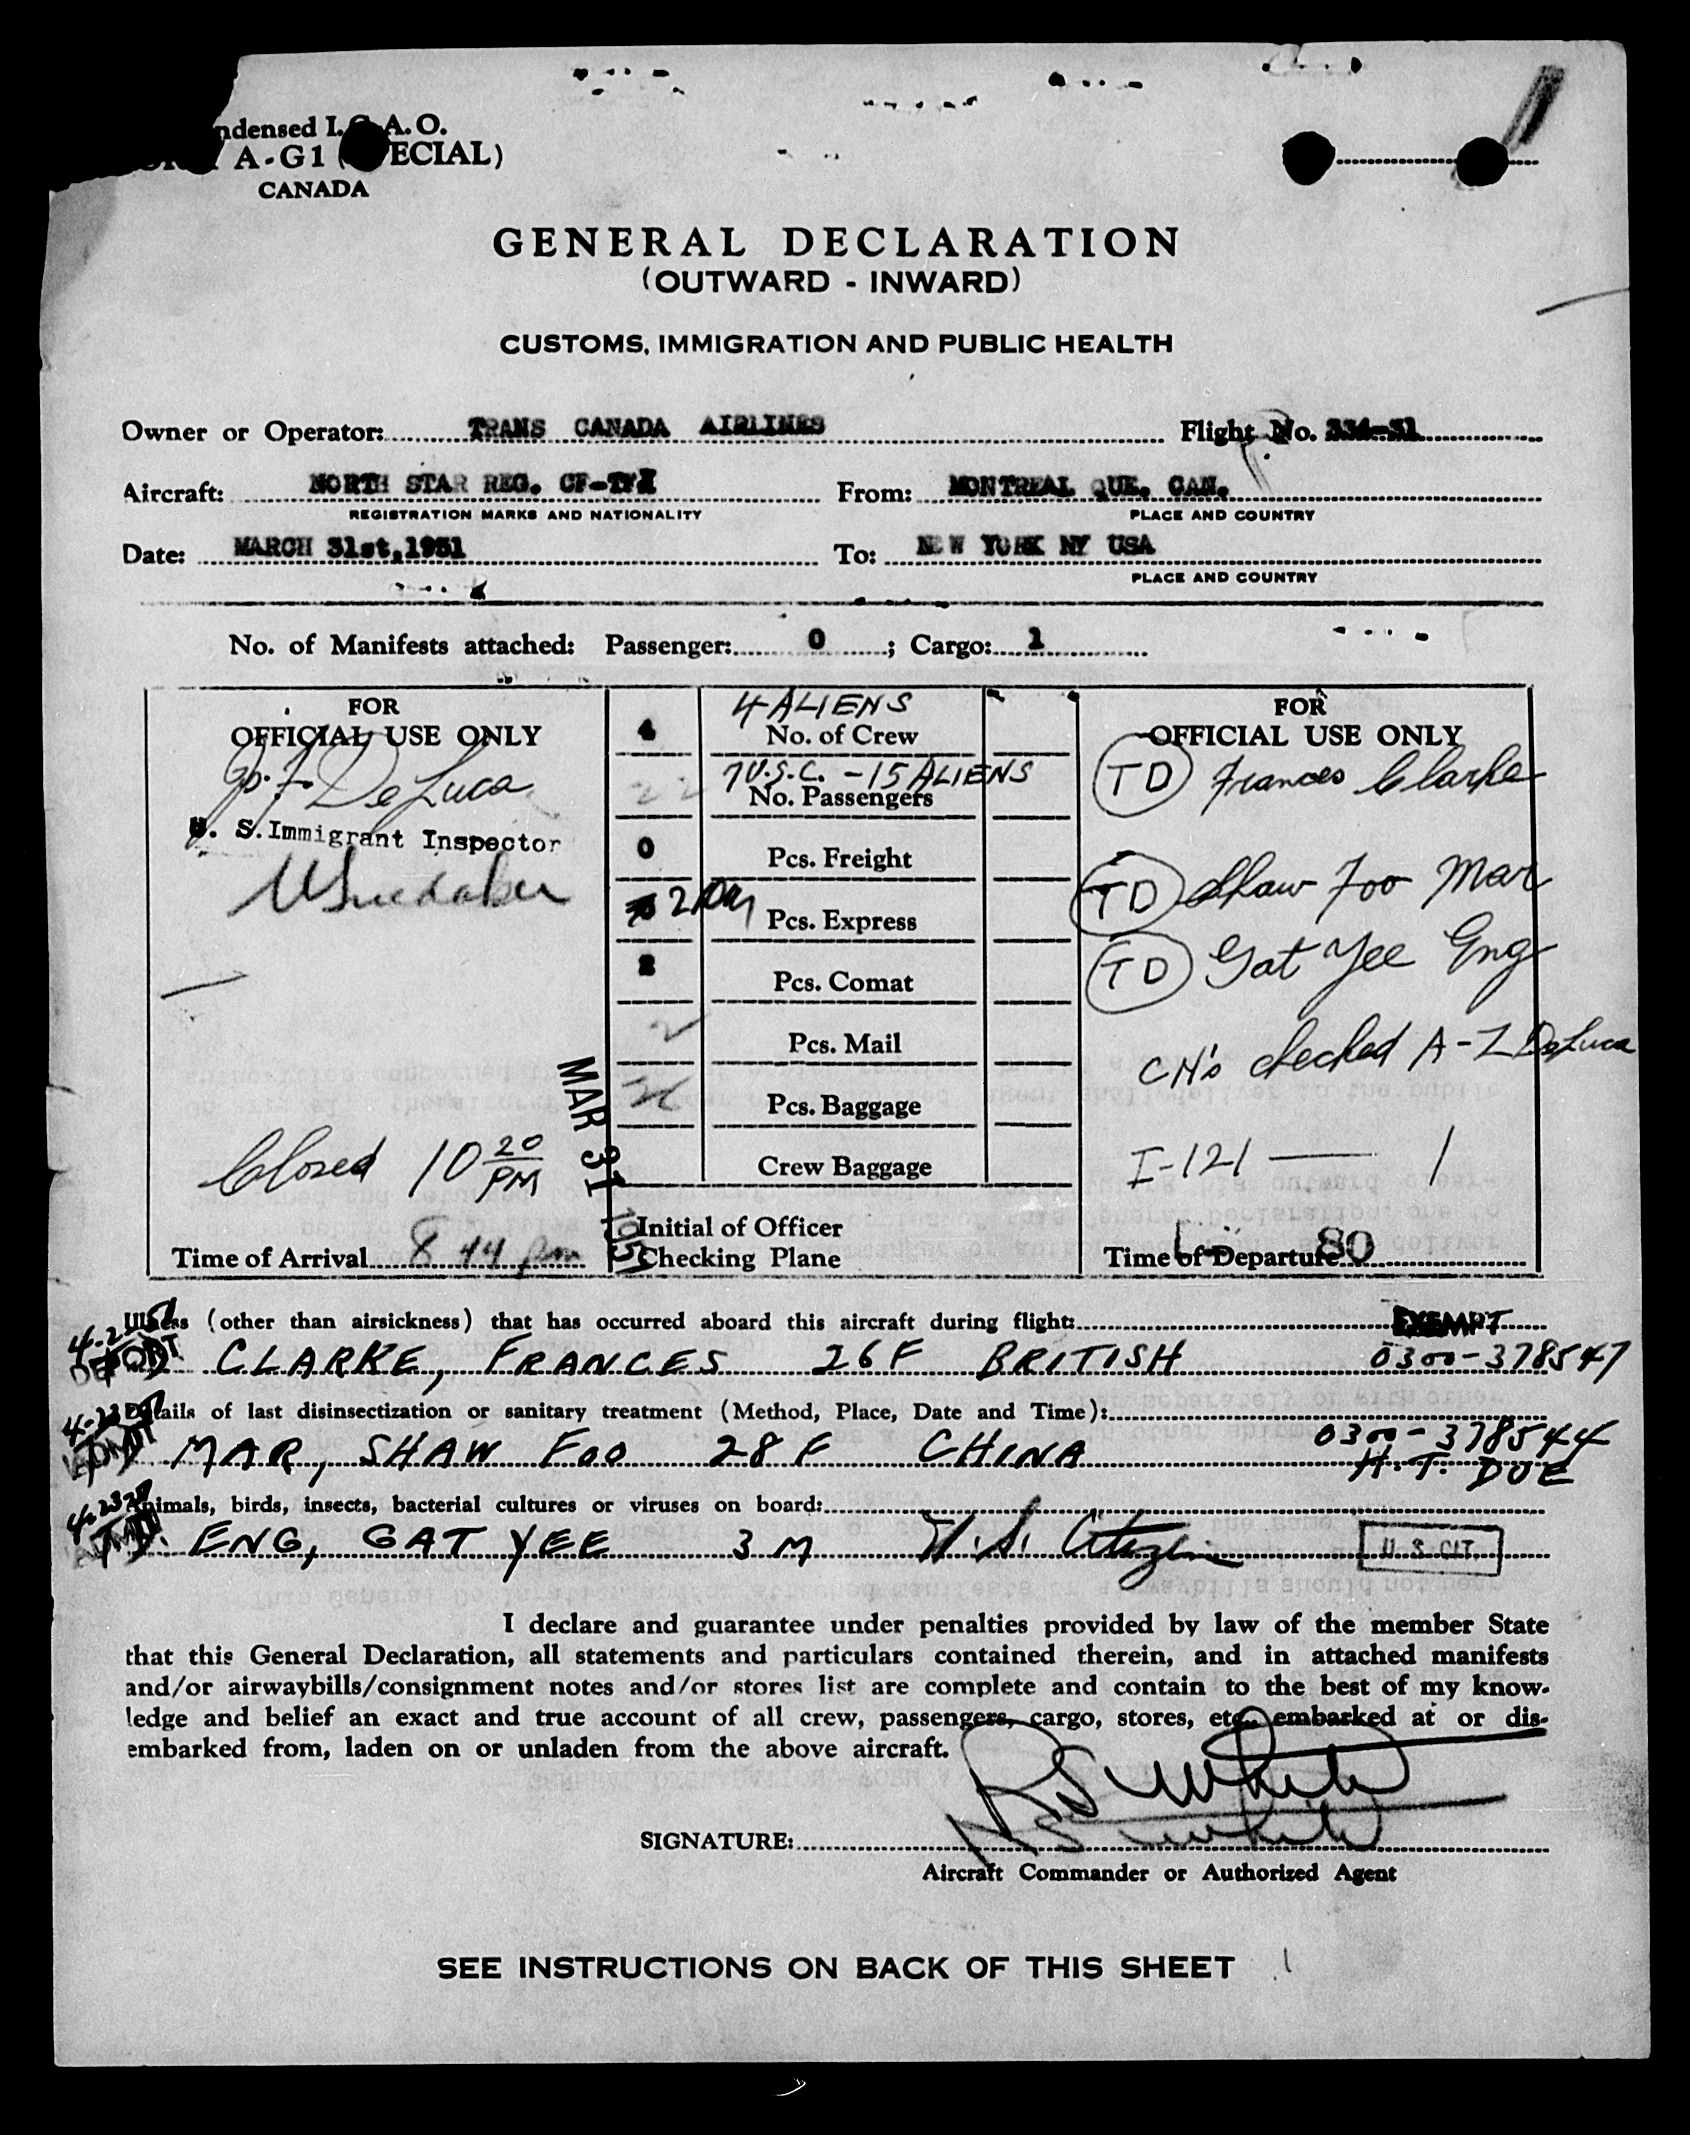 ndensed I.C.A.O.
A-G1 (SPECIAL)
CANADA
GENERAL DECLARATION
(OUTWARD - INWARD)
CUSTOMS, IMMIGRATION AND PUBLIC HEALTH
Owner or Operator: TRANS CANADA AIRLINES Flight No. 334-31
Aircraft: NORTH STAR REG. CF-TFX From: MONTREAL QUE. CAN.
REGISTRATION MARKS AND NATIONALITY PLACE AND COUNTRY
Date: MARCH 31st, 1951 To: NEW YORK NY USA
PLACE AND COUNTRY
No. of Manifests attached: Passenger: 0 ; Cargo: 1
FOR
OFFICIAL USE ONLY
De Luca
U. S. Immigrant Inspector
Closed 10 20 PM
Time of Arrival 8 44 pm
MAR 31 1951
4 ALIENS
4 No. of Crew
7 U.S.C. - 15 ALIENS
22 No. Passengers
0 Pcs. Freight
2 Pcs. Express
2 Pcs. Comat
Pcs. Mail
Pcs. Baggage
Crew Baggage
Initial of Officer
Checking Plane
FOR
OFFICIAL USE ONLY
TD Frances Clarke
TD Shaw Foo Mar
TD Gat Yee Eng
CN's checked A-Z DeLuca
I-121 — 1
80
Time of Departure
Illness (other than airsickness) that has occurred aboard this aircraft during flight: EXEMPT
CLARKE, FRANCES 26 F BRITISH 0300-378547
Details of last disinsectization or sanitary treatment (Method, Place, Date and Time):
MAR, SHAW FOO 28 F CHINA 0300-378544
H.T. DUE
Animals, birds, insects, bacterial cultures or viruses on board:
ENG, GAT YEE 3 M U.S. Citizen U S CIT.
I declare and guarantee under penalties provided by law of the member State
that this General Declaration, all statements and particulars contained therein, and in attached manifests
and/or airwaybills/consignment notes and/or stores list are complete and contain to the best of my know-
ledge and belief an exact and true account of all crew, passengers, cargo, stores, etc., embarked at or dis-
embarked from, laden on or unladen from the above aircraft.
SIGNATURE: R S White
Aircraft Commander or Authorized Agent
SEE INSTRUCTIONS ON BACK OF THIS SHEET